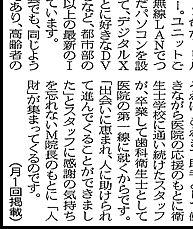 ー。ユニットご
無線LANでつ
だパソコンを設
て、「デジタルX
に好きなDV
など、都市部の
以上の最新の丁
ています。
宅でも、同じよう
あり、高齢者の
きながら医院の応援のもとに衛
生士学校に通い続けたスタッフ
が、卒業して歯科衛生士として
医院の第一線に就くからです。
「出会いに恵まれ、人に助けられ
て進んでくることができまし
た」とスタッフに感謝の気持ち
を忘れないM院長のもとに「人
財が集まってくるのです。
（月1回掲載）